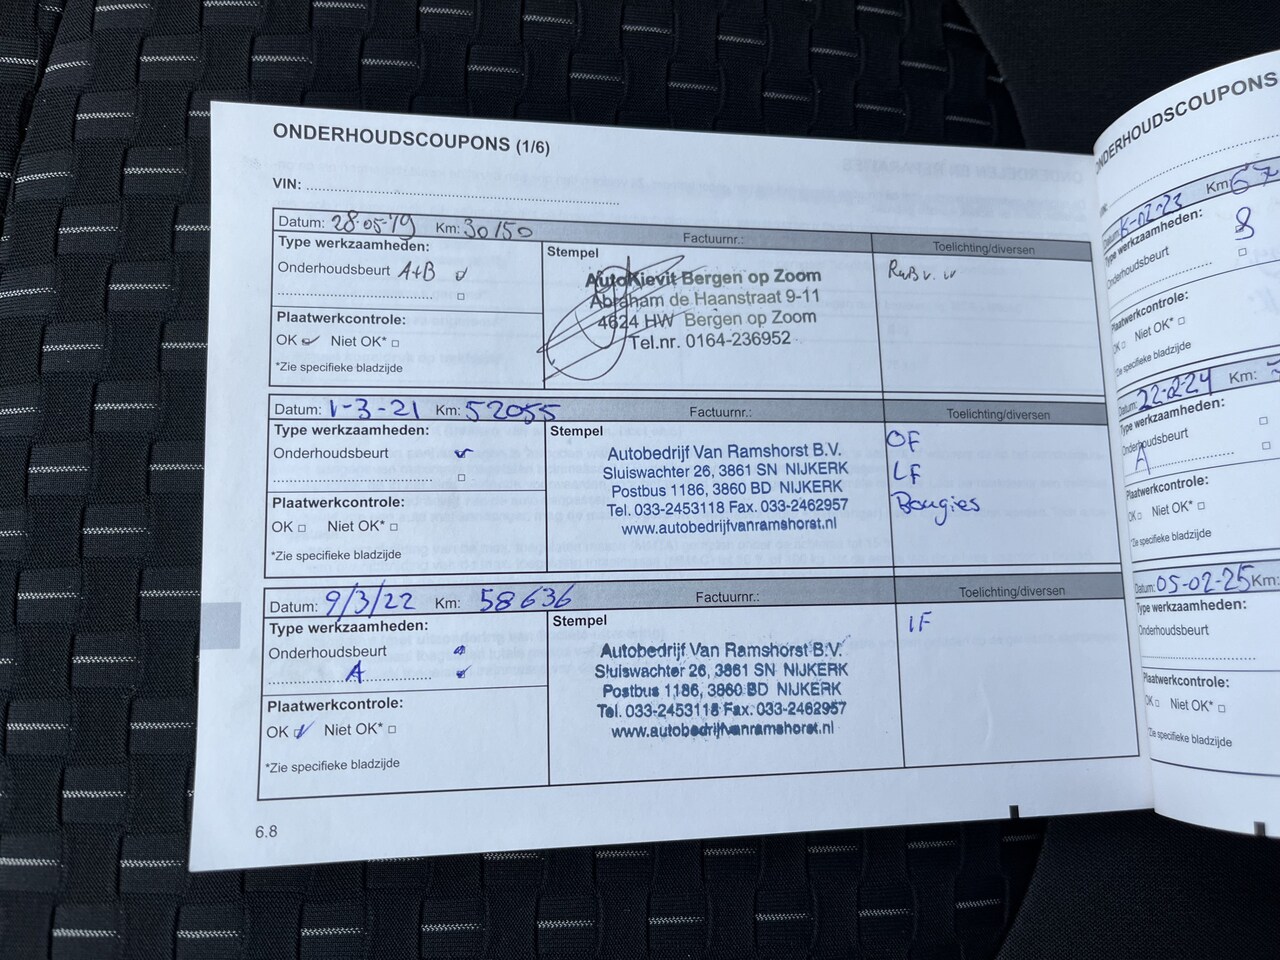 ONDERHOUDSCOUPONS (1/6)
VIN:
Datum: 28-05-19 Km: 30150 Factuurnr.: Toelichting/diversen
Type werkzaamheden:
Onderhoudsbeurt A+B
Plaatwerkcontrole:
OK Niet OK*
*Zie specifieke bladzijde
Stempel
AutoKievit Bergen op Zoom
Abraham de Haanstraat 9-11
4624 HW Bergen op Zoom
Tel.nr. 0164-236952
Datum: 1-3-21 Km: 52055 Factuurnr.: Toelichting/diversen
Type werkzaamheden:
Onderhoudsbeurt
Plaatwerkcontrole:
OK Niet OK*
*Zie specifieke bladzijde
Stempel
Autobedrijf Van Ramshorst B.V.
Sluiswachter 26, 3861 SN NIJKERK
Postbus 1186, 3860 BD NIJKERK
Tel. 033-2453118 Fax. 033-2462957
www.autobedrijfvanramshorst.nl
OF
LF
Bougies
Datum: 9/3/22 Km: 58636 Factuurnr.: Toelichting/diversen
Type werkzaamheden:
Onderhoudsbeurt
A
Plaatwerkcontrole:
OK Niet OK*
*Zie specifieke bladzijde
Stempel
Autobedrijf Van Ramshorst B.V.
Sluiswachter 26, 3861 SN NIJKERK
Postbus 1186, 3860 BD NIJKERK
Tel. 033-2453118 Fax. 033-2462957
www.autobedrijfvanramshorst.nl
IF
6.8
ONDERHOUDSCOUPONS
Datum: Km:
Type werkzaamheden:
Onderhoudsbeurt
Plaatwerkcontrole:
OK Niet OK*
*Zie specifieke bladzijde
Datum: 22-2-24 Km:
Type werkzaamheden:
Onderhoudsbeurt
A
Plaatwerkcontrole:
OK Niet OK*
*Zie specifieke bladzijde
Datum: 05-02-25 Km:
Type werkzaamheden:
Onderhoudsbeurt
Plaatwerkcontrole:
OK Niet OK*
*Zie specifieke bladzijde